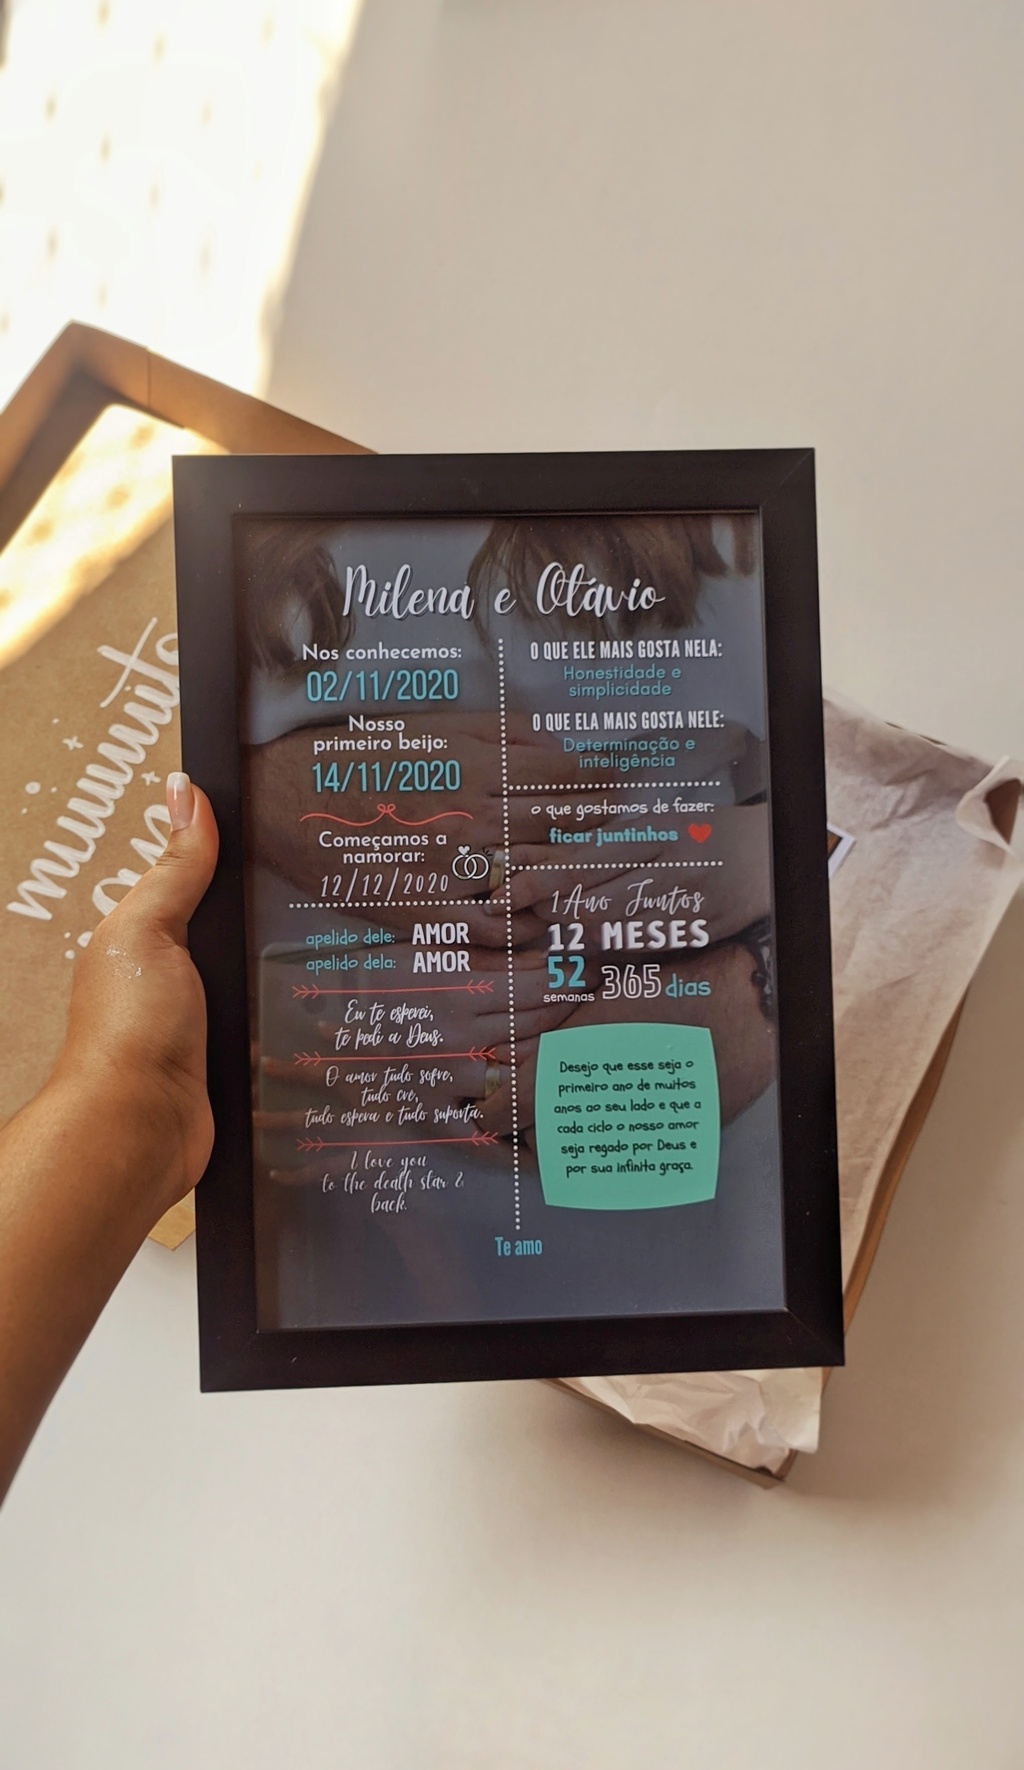 Milena e Otávio
Nos conhecemos:
02/11/2020
Nosso
primeiro beijo:
14/11/2020
Começamos a
namorar:
12/12/2020
apelido dele: AMOR
apelido dela: AMOR
Eu te esperei,
te pedi a Deus.
O amor tudo sofre,
tudo crê,
tudo espera e tudo suporta.
I love you
to the death star &
back.
O QUE ELE MAIS GOSTA NELA:
Honestidade e
simplicidade
O QUE ELA MAIS GOSTA NELE:
Determinação e
inteligência
o que gostamos de fazer:
ficar juntinhos
1 Ano Juntos
12 MESES
52
semanas 365 dias
Desejo que esse seja o
primeiro ano de muitos
anos ao seu lado e que a
cada ciclo o nosso amor
seja regado por Deus e
por sua infinita graça.
Te amo